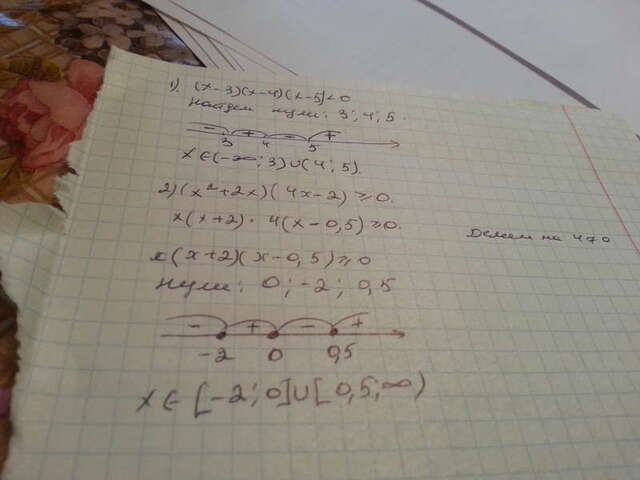 1). (x-3)(x-4)(x-5)<0
Найдем нули: 3; 4; 5.
- + - +
3 4 5
x∈(-∞; 3)∪(4; 5).
2) (x²+2x)(4x-2)≥0.
x(x+2)·4(x-0,5)≥0.
Делим на 4>0
x(x+2)(x-0,5)≥0
нули: 0; -2; 0,5
- + - +
-2 0 0,5
x∈[-2; 0]∪[0,5; ∞)